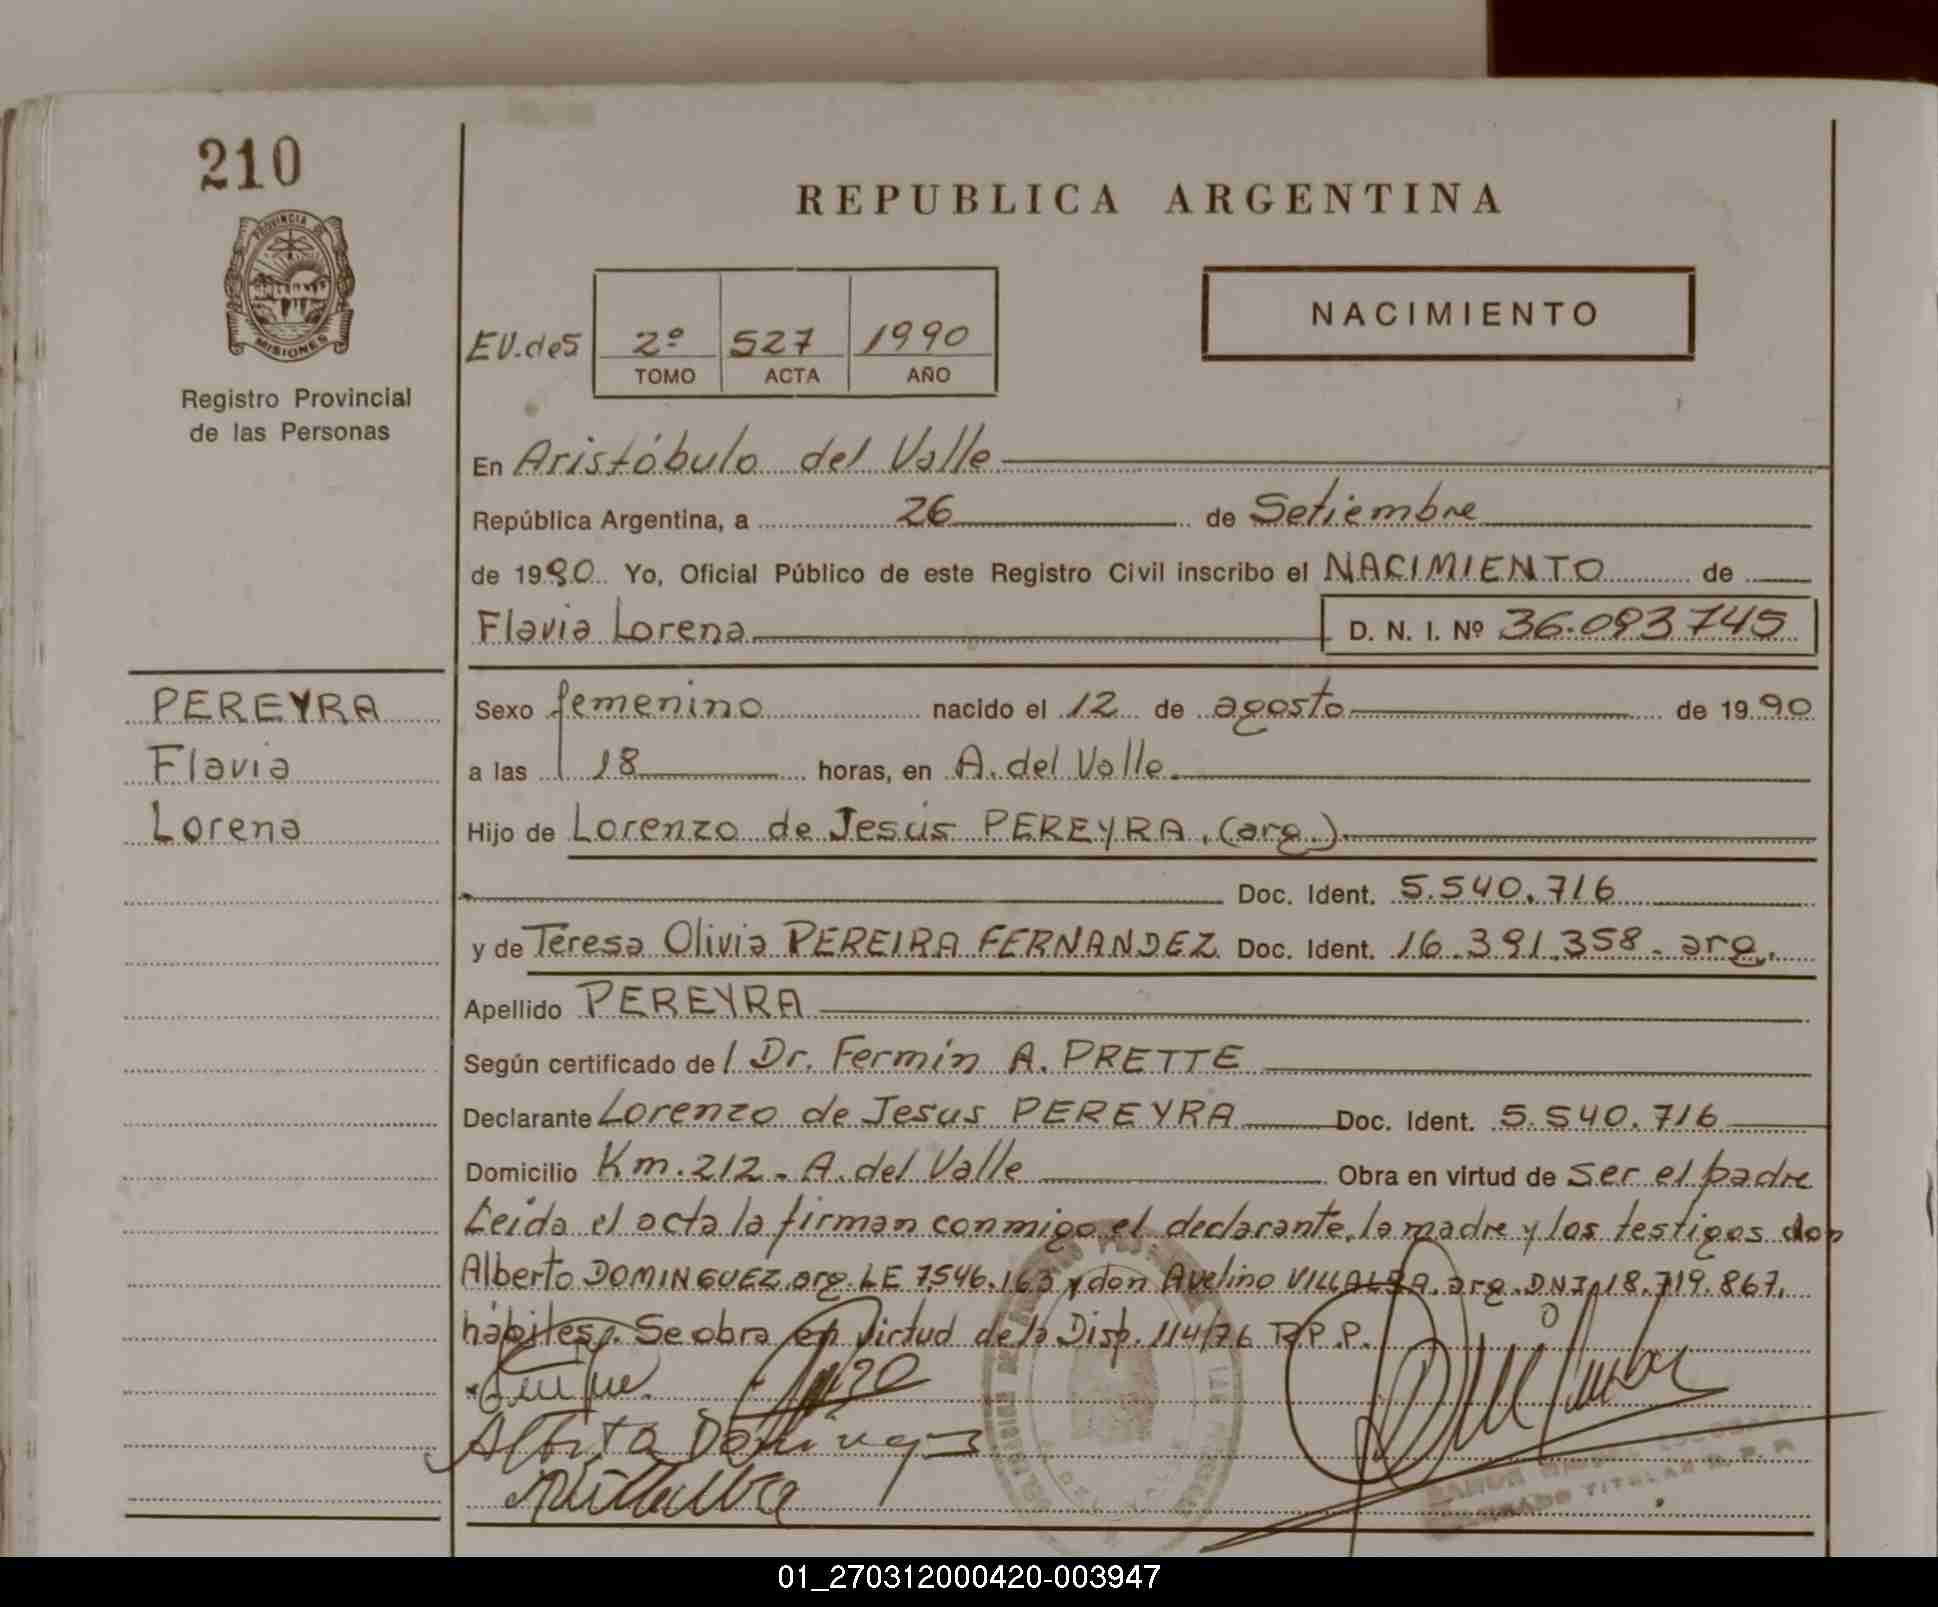 210
PROVINCIA DE
MISIONES
Registro Provincial
de las Personas
REPUBLICA ARGENTINA
NACIMIENTO
EV.des 2º 527 1990
TOMO ACTA AÑO
En Aristóbulo del Valle
República Argentina, a 26 de Setiembre
de 1990 Yo, Oficial Público de este Registro Civil inscribo el NACIMIENTO de
Flavia Lorena D. N. I. Nº 36.093.745
PEREYRA
Flavia
Lorena
Sexo femenino nacido el 12 de agosto de 1990
a las 18 horas, en A. del Valle
Hijo de Lorenzo de Jesús PEREYRA, (arg.)
Doc. Ident. 5.540.716
y de Teresa Olivia PEREIRA FERNANDEZ Doc. Ident. 16.391.358 - arg.
Apellido PEREYRA
Según certificado de l Dr. Fermín A. PRETTE
Declarante Lorenzo de Jesus PEREYRA Doc. Ident. 5.540.716
Domicilio Km. 212 - A. del Valle Obra en virtud de ser el padre
Leida el acta la firman conmigo el declarante, la madre y los testigos don
Alberto DOMINGUEZ arg. LE 7.546.163 y don Avelino VILLALBA, arg. DNI 18.719.867,
hábiles. Se obra en virtud de la Disp. 114/76 R.P.P.
TITULAR R. P. P.
01_270312000420-003947